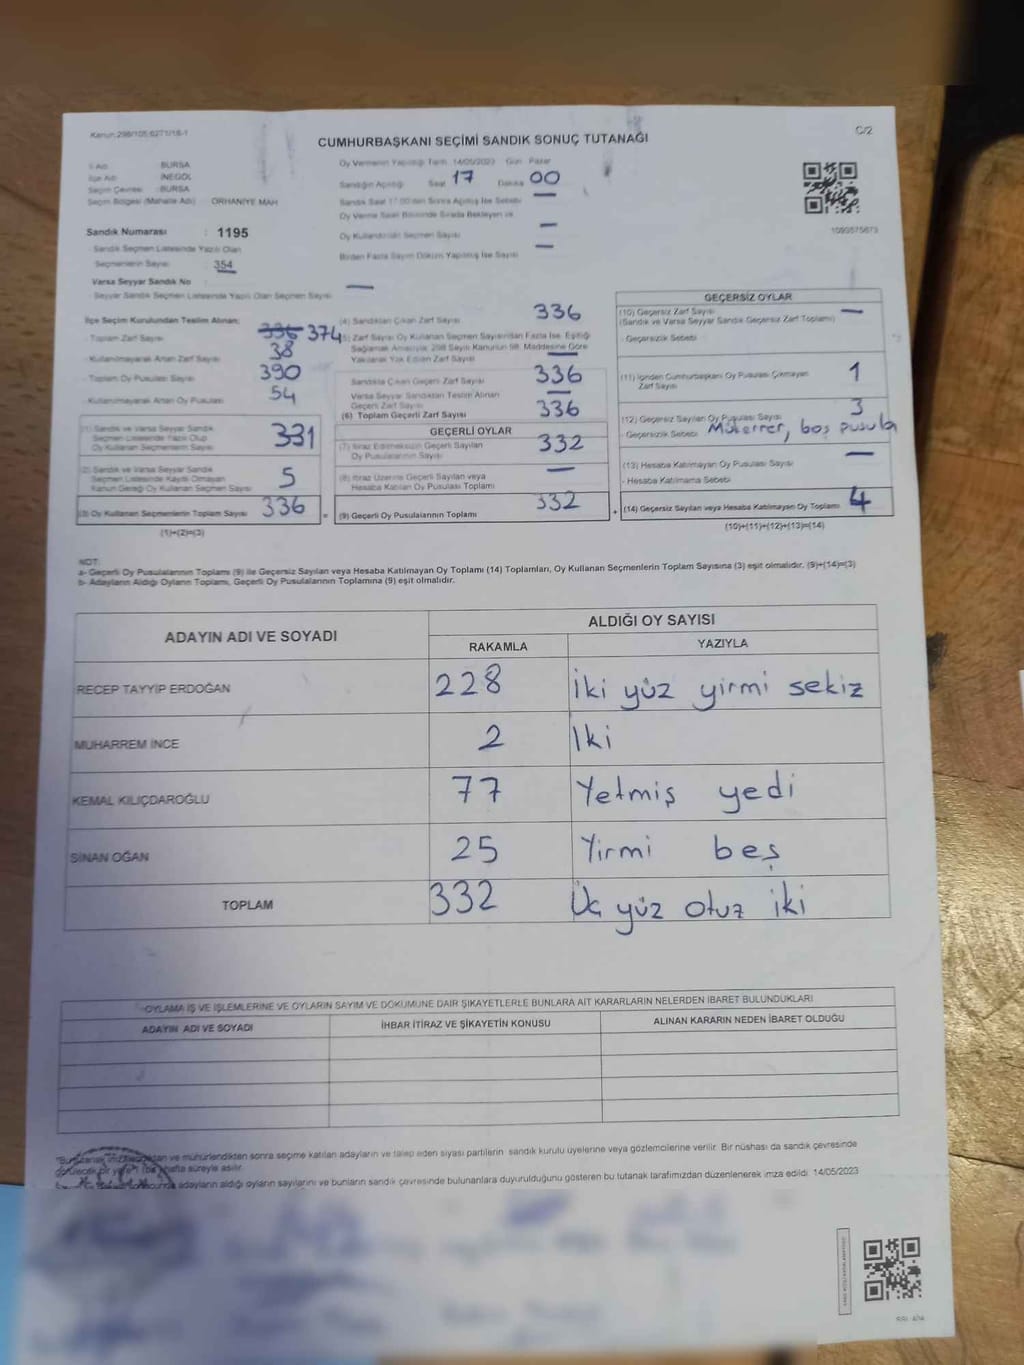 Kanun:298/105;6271/18-1
C/2
CUMHURBAŞKANI SEÇİMİ SANDIK SONUÇ TUTANAĞI
İl Adı : BURSA
İlçe Adı : İNEGÖL
Seçim Çevresi : BURSA
Seçim Bölgesi (Mahalle Adı) : ORHANİYE MAH
Sandık Numarası : 1195
Sandık Seçmen Listesinde Yazılı Olan
Seçmenlerin Sayısı : 354
Varsa Seyyar Sandık No : —
Seyyar Sandık Seçmen Listesinde Yazılı Olan Seçmen Sayısı
Oy Vermenin Yapıldığı Tarih : 14/05/2023 Gün : Pazar
Sandığın Açılışı Saat 17 Dakika 00
Sandık Saat 17:00'den Sonra Açılmış İse Sebebi —
Oy Verme Saati Bitiminde Sırada Bekleyen ve
Oy Kullandırılan Seçmen Sayısı —
Birden Fazla Sayım Döküm Yapılmış İse Sayısı —
1093575873
İlçe Seçim Kurulundan Teslim Alınan;
- Toplam Zarf Sayısı 336 374
- Kullanılmayarak Artan Zarf Sayısı 38
- Toplam Oy Pusulası Sayısı 390
- Kullanılmayarak Artan Oy Pusulası 54
(1) Sandık ve Varsa Seyyar Sandık
Seçmen Listesinde Yazılı Olup
Oy Kullanan Seçmenlerin Sayısı 331
(2) Sandık ve Varsa Seyyar Sandık
Seçmen Listesinde Kaydı Olmayan
Kanun Gereği Oy Kullanan Seçmen Sayısı 5
(3) Oy Kullanan Seçmenlerin Toplam Sayısı 336
(1)+(2)=(3)
(4) Sandıktan Çıkan Zarf Sayısı 336
(5) Zarf Sayısı Oy Kullanan Seçmen Sayısından Fazla İse, Eşitliği
Sağlamak Amacıyla, 298 Sayılı Kanunun 98. Maddesine Göre
Yakılarak Yok Edilen Zarf Sayısı —
Sandıkta Çıkan Geçerli Zarf Sayısı 336
Varsa Seyyar Sandıktan Teslim Alınan
Geçerli Zarf Sayısı —
(6) Toplam Geçerli Zarf Sayısı 336
GEÇERLİ OYLAR
(7) İtiraz Edilmeksizin Geçerli Sayılan
Oy Pusulalarının Sayısı 332
(8) İtiraz Üzerine Geçerli Sayılan veya
Hesaba Katılan Oy Pusulası Toplamı —
= (9) Geçerli Oy Pusulalarının Toplamı 332
GEÇERSİZ OYLAR
(10) Geçersiz Zarf Sayısı —
(Sandık ve Varsa Seyyar Sandık Geçersiz Zarf Toplamı)
- Geçersizlik Sebebi
(11) İçinden Cumhurbaşkanı Oy Pusulası Çıkmayan
Zarf Sayısı 1
(12) Geçersiz Sayılan Oy Pusulası Sayısı 3
- Geçersizlik Sebebi Mükerrer, boş pusula
(13) Hesaba Katılmayan Oy Pusulası Sayısı —
- Hesaba Katılmama Sebebi
+ (14) Geçersiz Sayılan veya Hesaba Katılmayan Oy Toplamı 4
(10)+(11)+(12)+(13)=(14)
NOT:
a- Geçerli Oy Pusulalarının Toplamı (9) ile Geçersiz Sayılan veya Hesaba Katılmayan Oy Toplamı (14) Toplamları, Oy Kullanan Seçmenlerin Toplam Sayısına (3) eşit olmalıdır. (9)+(14)=(3)
b- Adayların Aldığı Oyların Toplamı, Geçerli Oy Pusulalarının Toplamına (9) eşit olmalıdır.
ADAYIN ADI VE SOYADI
ALDIĞI OY SAYISI
RAKAMLA YAZIYLA
RECEP TAYYİP ERDOĞAN 228 İki yüz yirmi sekiz
MUHARREM İNCE 2 Iki
KEMAL KILIÇDAROĞLU 77 Yetmiş yedi
SİNAN OĞAN 25 Yirmi beş
TOPLAM 332 Üç yüz otuz iki
OYLAMA İŞ VE İŞLEMLERİNE VE OYLARIN SAYIM VE DÖKÜMÜNE DAİR ŞİKAYETLERLE BUNLARA AİT KARARLARIN NELERDEN İBARET BULUNDUKLARI
ADAYIN ADI VE SOYADI İHBAR İTİRAZ VE ŞİKAYETİN KONUSU ALINAN KARARIN NEDEN İBARET OLDUĞU
ve mühürlendikten sonra seçime katılan adayların ve talep eden siyasi partilerin sandık kurulu üyelerine veya gözlemcilerine verilir. Bir nüshası da sandık çevresinde
görülecek bir yere hafta süreyle asılır.
adayların aldığı oyların sayılarını ve bunların sandık çevresinde bulunanlara duyurulduğunu gösteren bu tutanak tarafımızdan düzenlenerek imza edildi. 14/05/2023